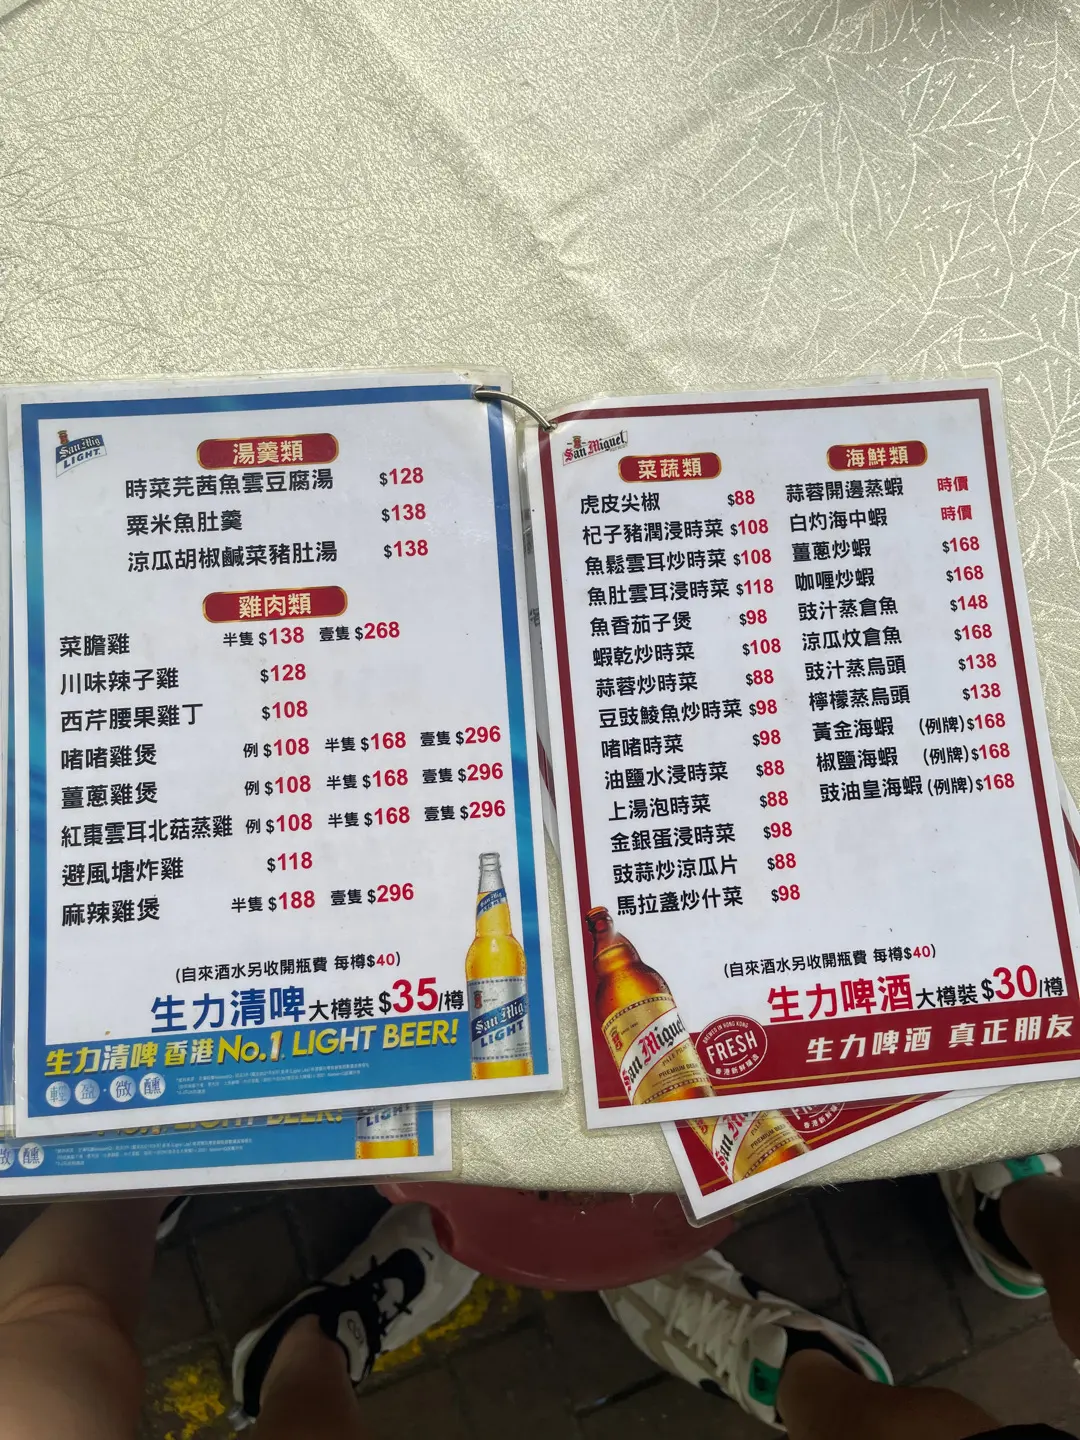 San Mig
LIGHT.
湯羹類
時菜芫茜魚雲豆腐湯 $128
粟米魚肚羹 $138
涼瓜胡椒鹹菜豬肚湯 $138
雞肉類
菜膽雞 半隻 $138 壹隻 $268
川味辣子雞 $128
西芹腰果雞丁 $108
啫啫雞煲 例 $108 半隻 $168 壹隻 $296
薑蔥雞煲 例 $108 半隻 $168 壹隻 $296
紅棗雲耳北菇蒸雞 例 $108 半隻 $168 壹隻 $296
避風塘炸雞 $118
麻辣雞煲 半隻 $188 壹隻 $296
(自來酒水另收開瓶費 每樽$40)
生力清啤 大樽裝 $35/樽
生力清啤 香港 No.1 LIGHT BEER!
輕盈·微醺
San Mig
LIGHT
San Miguel
菜蔬類
虎皮尖椒 $88
杞子豬潤浸時菜 $108
魚鬆雲耳炒時菜 $108
魚肚雲耳浸時菜 $118
魚香茄子煲 $98
蝦乾炒時菜 $108
蒜蓉炒時菜 $88
豆豉鯪魚炒時菜 $98
啫啫時菜 $98
油鹽水浸時菜 $88
上湯泡時菜 $88
金銀蛋浸時菜 $98
豉蒜炒涼瓜片 $88
馬拉盞炒什菜 $98
海鮮類
蒜蓉開邊蒸蝦 時價
白灼海中蝦 時價
薑蔥炒蝦 $168
咖喱炒蝦 $168
豉汁蒸倉魚 $148
涼瓜炆倉魚 $168
豉汁蒸烏頭 $138
檸檬蒸烏頭 $138
黃金海蝦 (例牌) $168
椒鹽海蝦 (例牌) $168
豉油皇海蝦 (例牌) $168
(自來酒水另收開瓶費 每樽$40)
生力啤酒 大樽裝 $30/樽
生力啤酒 真正朋友
San Miguel
PREMIUM BEER
BREWED IN HONG KONG
FRESH
香港新鮮釀造
LIGHT BEER!
微醺
PREMIUM BEER